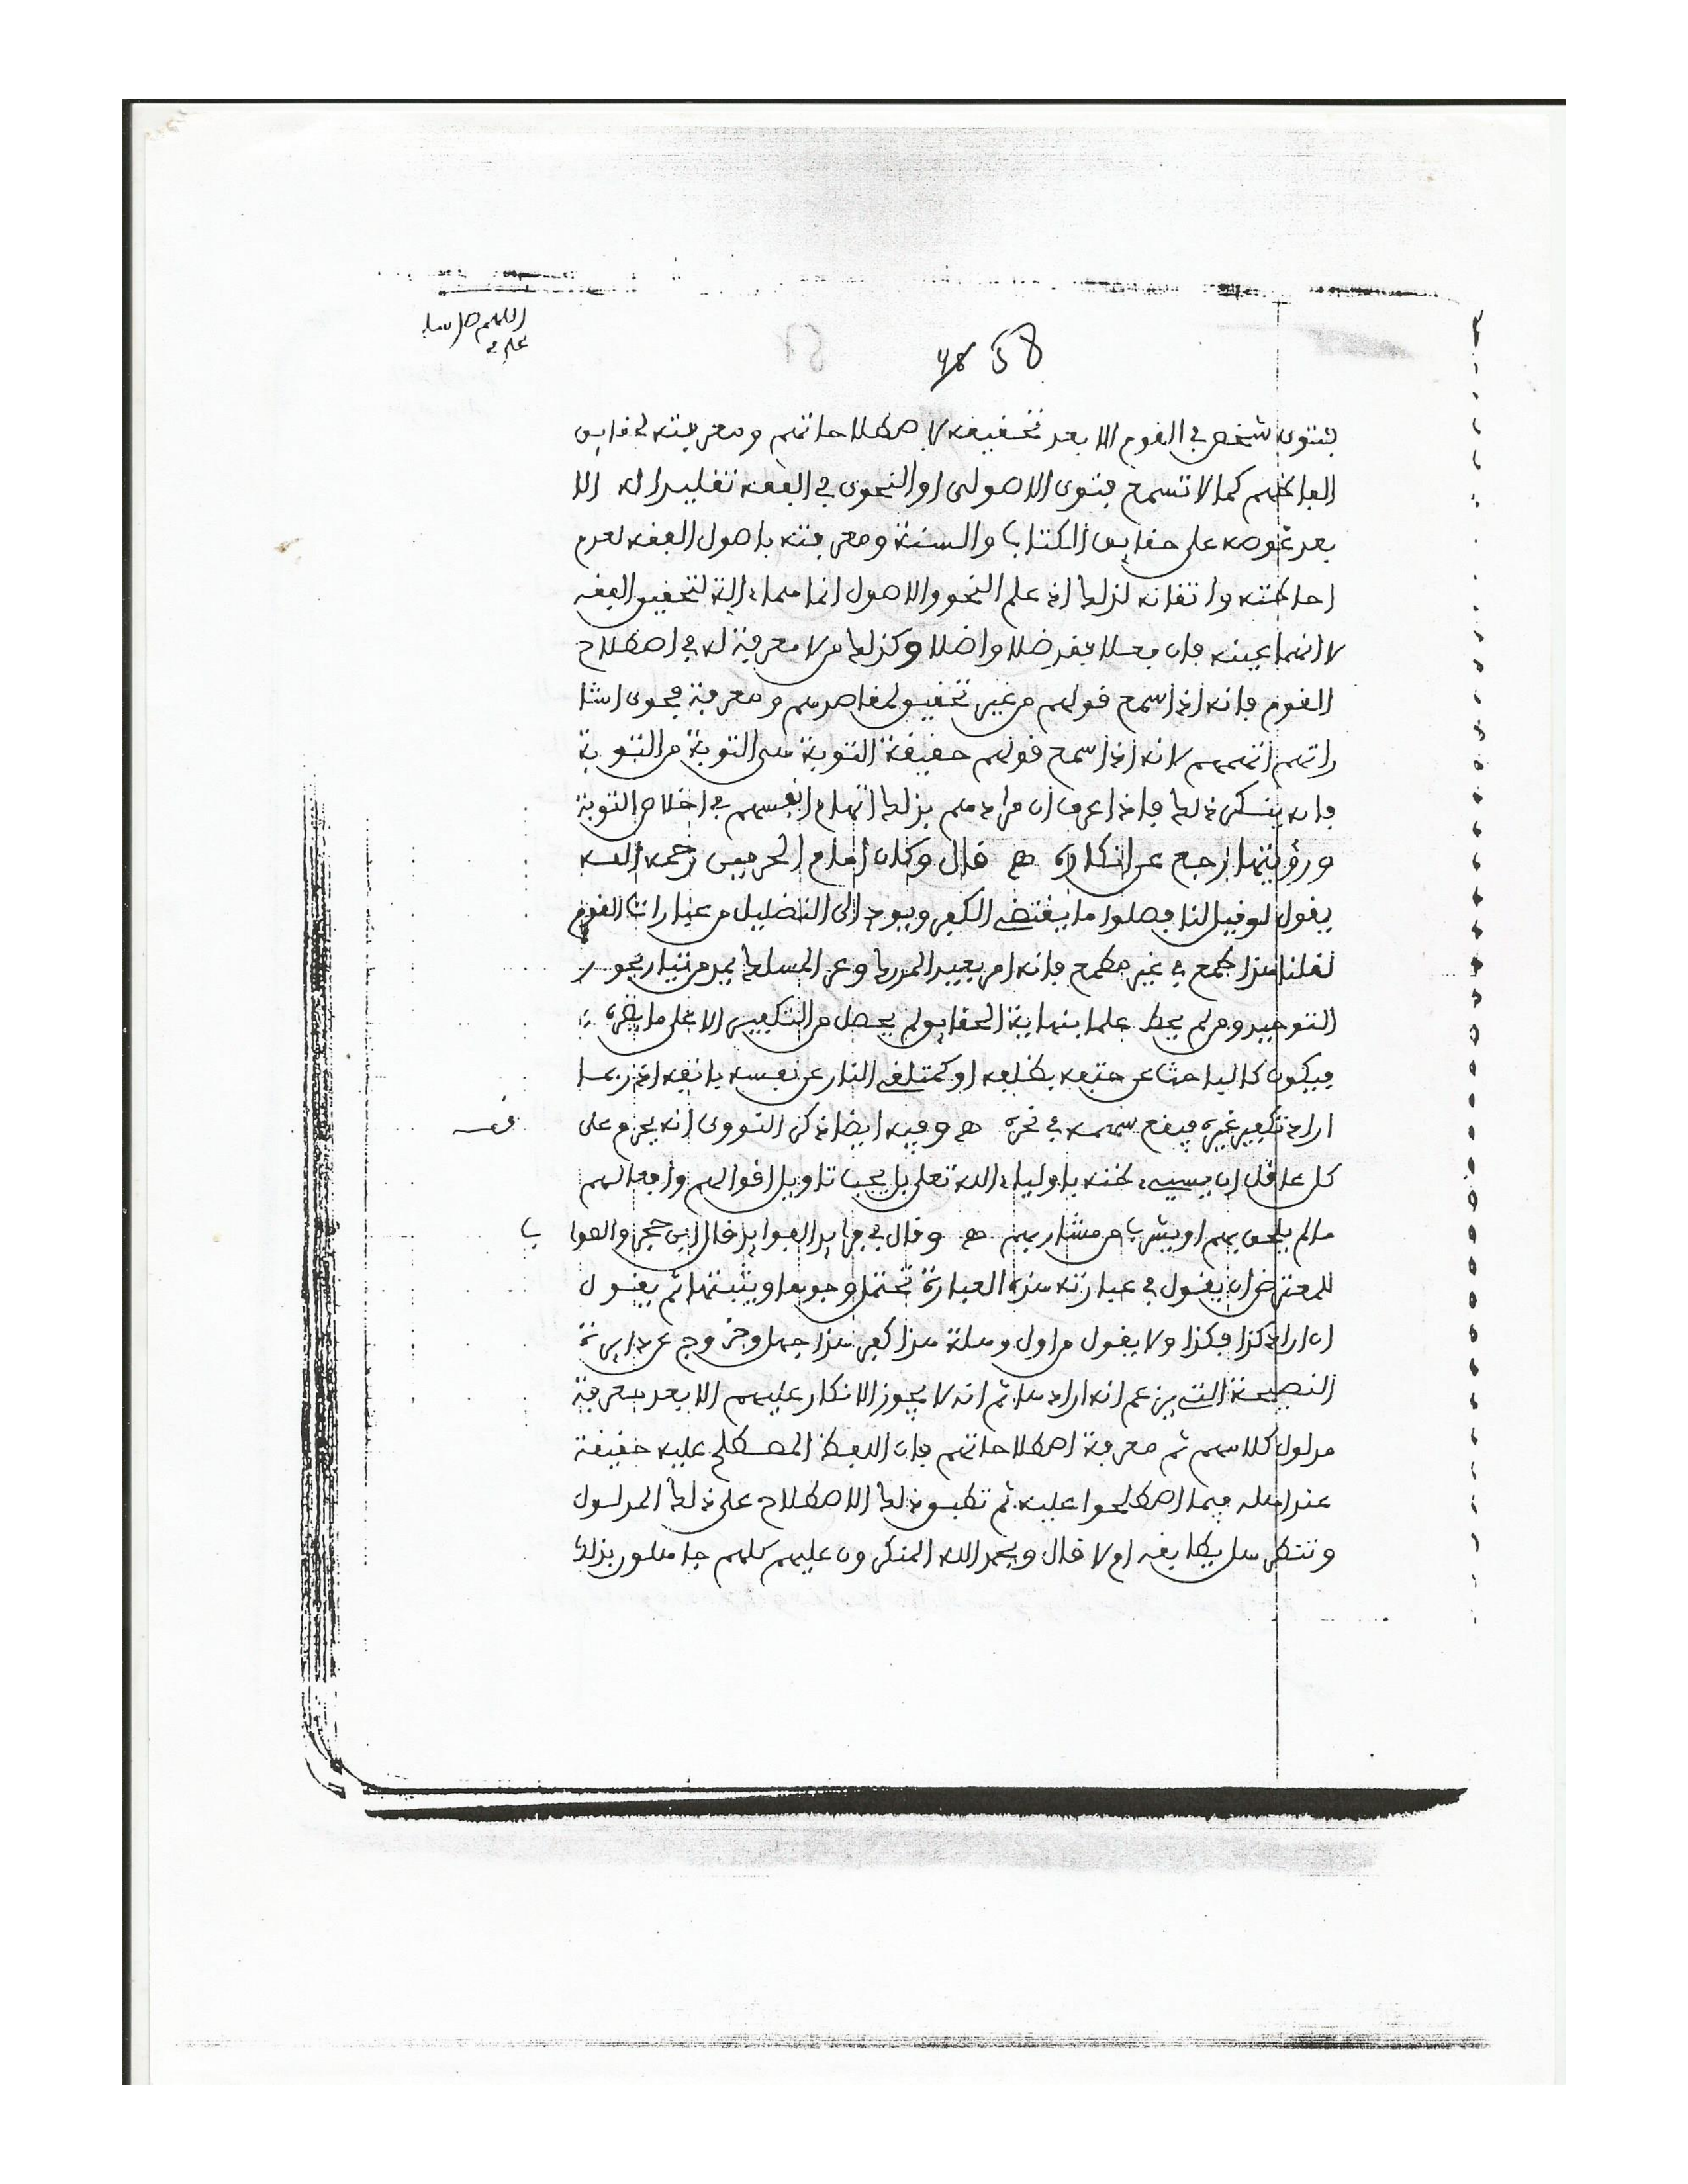 اللهم صل وسلم
عليه
48 58
فتوى شخص في القوم الا بعد تحقيقه لاصطلاحاتهم ومعرفته لحقايق
الفاظهم كما لا تسمع فتوى الاصولى او النحوى في الفقه تقليدا له الا
بعد غوصه على حقايق الكتاب والسنة ومعرفته باصول الفقه لعدم
احاطته واتقانه لذلك اذ علم النحو والاصول انما هما ءالة لتحقيق الفقه
لا انهما عينه فان فعلا فقد ضلا واضلا وكذلك من لا معرفة له في اصطلاح
القوم فانه اذا سمع قولهم من غير تحقيق لمقاصدهم ومعرفة فحوى اشا
راتهم اتهمهم لانه اذا سمع قولهم حقيقة التوبة هى التوبة من التوبة
فانه ينكر ذلك فاذا عرف ان مرادهم بذلك اتهام انفسهم في اخلاص التوبة
ورؤيتها رجع عن انكاره هـ قال وكان امام الحرمين رحمه الله
يقول لو قيل لنا فصلوا ما يقتضى الكفر ويودى الى التضليل من عبارات القوم
لقلنا هذا طمع في غير مطمع فانه امر بعيد المدرك وعر المسلك يمد من تيار بحور
التوحيد ومن لم يحط علما بنهاية الحقايق لم يحصل من التكفير الا على ما يضره
فيكون كالباحث عن حتفه بظلفه او كمتلقى النار عن نفسه بانفه اذ ربما
اراد تكفير غيره فيقع سهمه في نحره هـ وفيه ايضا ذكر النووى انه يحرم على
كل عاقل ان يسيء ظنه باولياء الله تعلى بل يجب تاويل اقوالهم وافعالهم
ما لم يلحق بهم او يشرب من مشاربهم هـ وقال في فرايد الفوايد قال ابن حجر والصوا ب
للمعترض ان يقول في عبارته هذه العبارة تحتمل وجوها ويثبتها ثم يقول
ان اراد كذا فكذا ولا يقول من اول وهلة هذا كفر هذا جهل وخروج عن دايرة
النصيحة التى يزعم انه ارادها ثم انه لا يجوز الانكار عليهم الا بعد معرفة
مدلول كلامهم ثم معرفة اصطلاحاتهم فان اللفظ المصطلح عليه حقيقة
عند اهله فيما اصطلحوا عليه ثم تطبيق ذلك الاصطلاح على ذلك المدلول
وتنظر هل يطابقه ام لا قال وبحمد الله المنكرون عليهم كلهم جاهلون بذلك